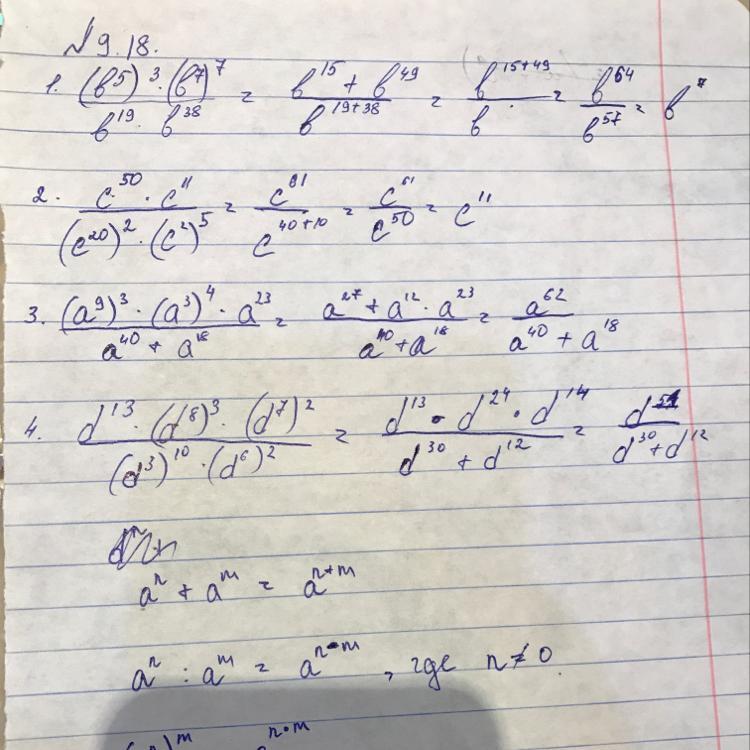 № 9.18.
1. (b⁵)³ · (b⁷)⁷ / b¹⁹ · b³⁸ = b¹⁵ + b⁴⁹ / b¹⁹⁺³⁸ = b¹⁵⁺⁴⁹ / b = b⁶⁴ / b⁵⁷ = b⁷
2. c⁵⁰ · c¹¹ / (c²⁰)² · (c²)⁵ = c⁶¹ / c⁴⁰⁺¹⁰ = c⁶¹ / c⁵⁰ = c¹¹
3. (a⁹)³ · (a³)⁴ · a²³ / a⁴⁰ + a¹⁸ = a²⁷ + a¹² · a²³ / a⁴⁰ + a¹⁸ = a⁶² / a⁴⁰ + a¹⁸
4. d¹³ · (d⁸)³ · (d⁷)² / (d³)¹⁰ · (d⁶)² = d¹³ · d²⁴ · d¹⁴ / d³⁰ + d¹² = d⁵¹ / d³⁰ + d¹²
aⁿ + aᵐ = aⁿ⁺ᵐ
aⁿ : aᵐ = aⁿ⁻ᵐ, где n ≠ 0